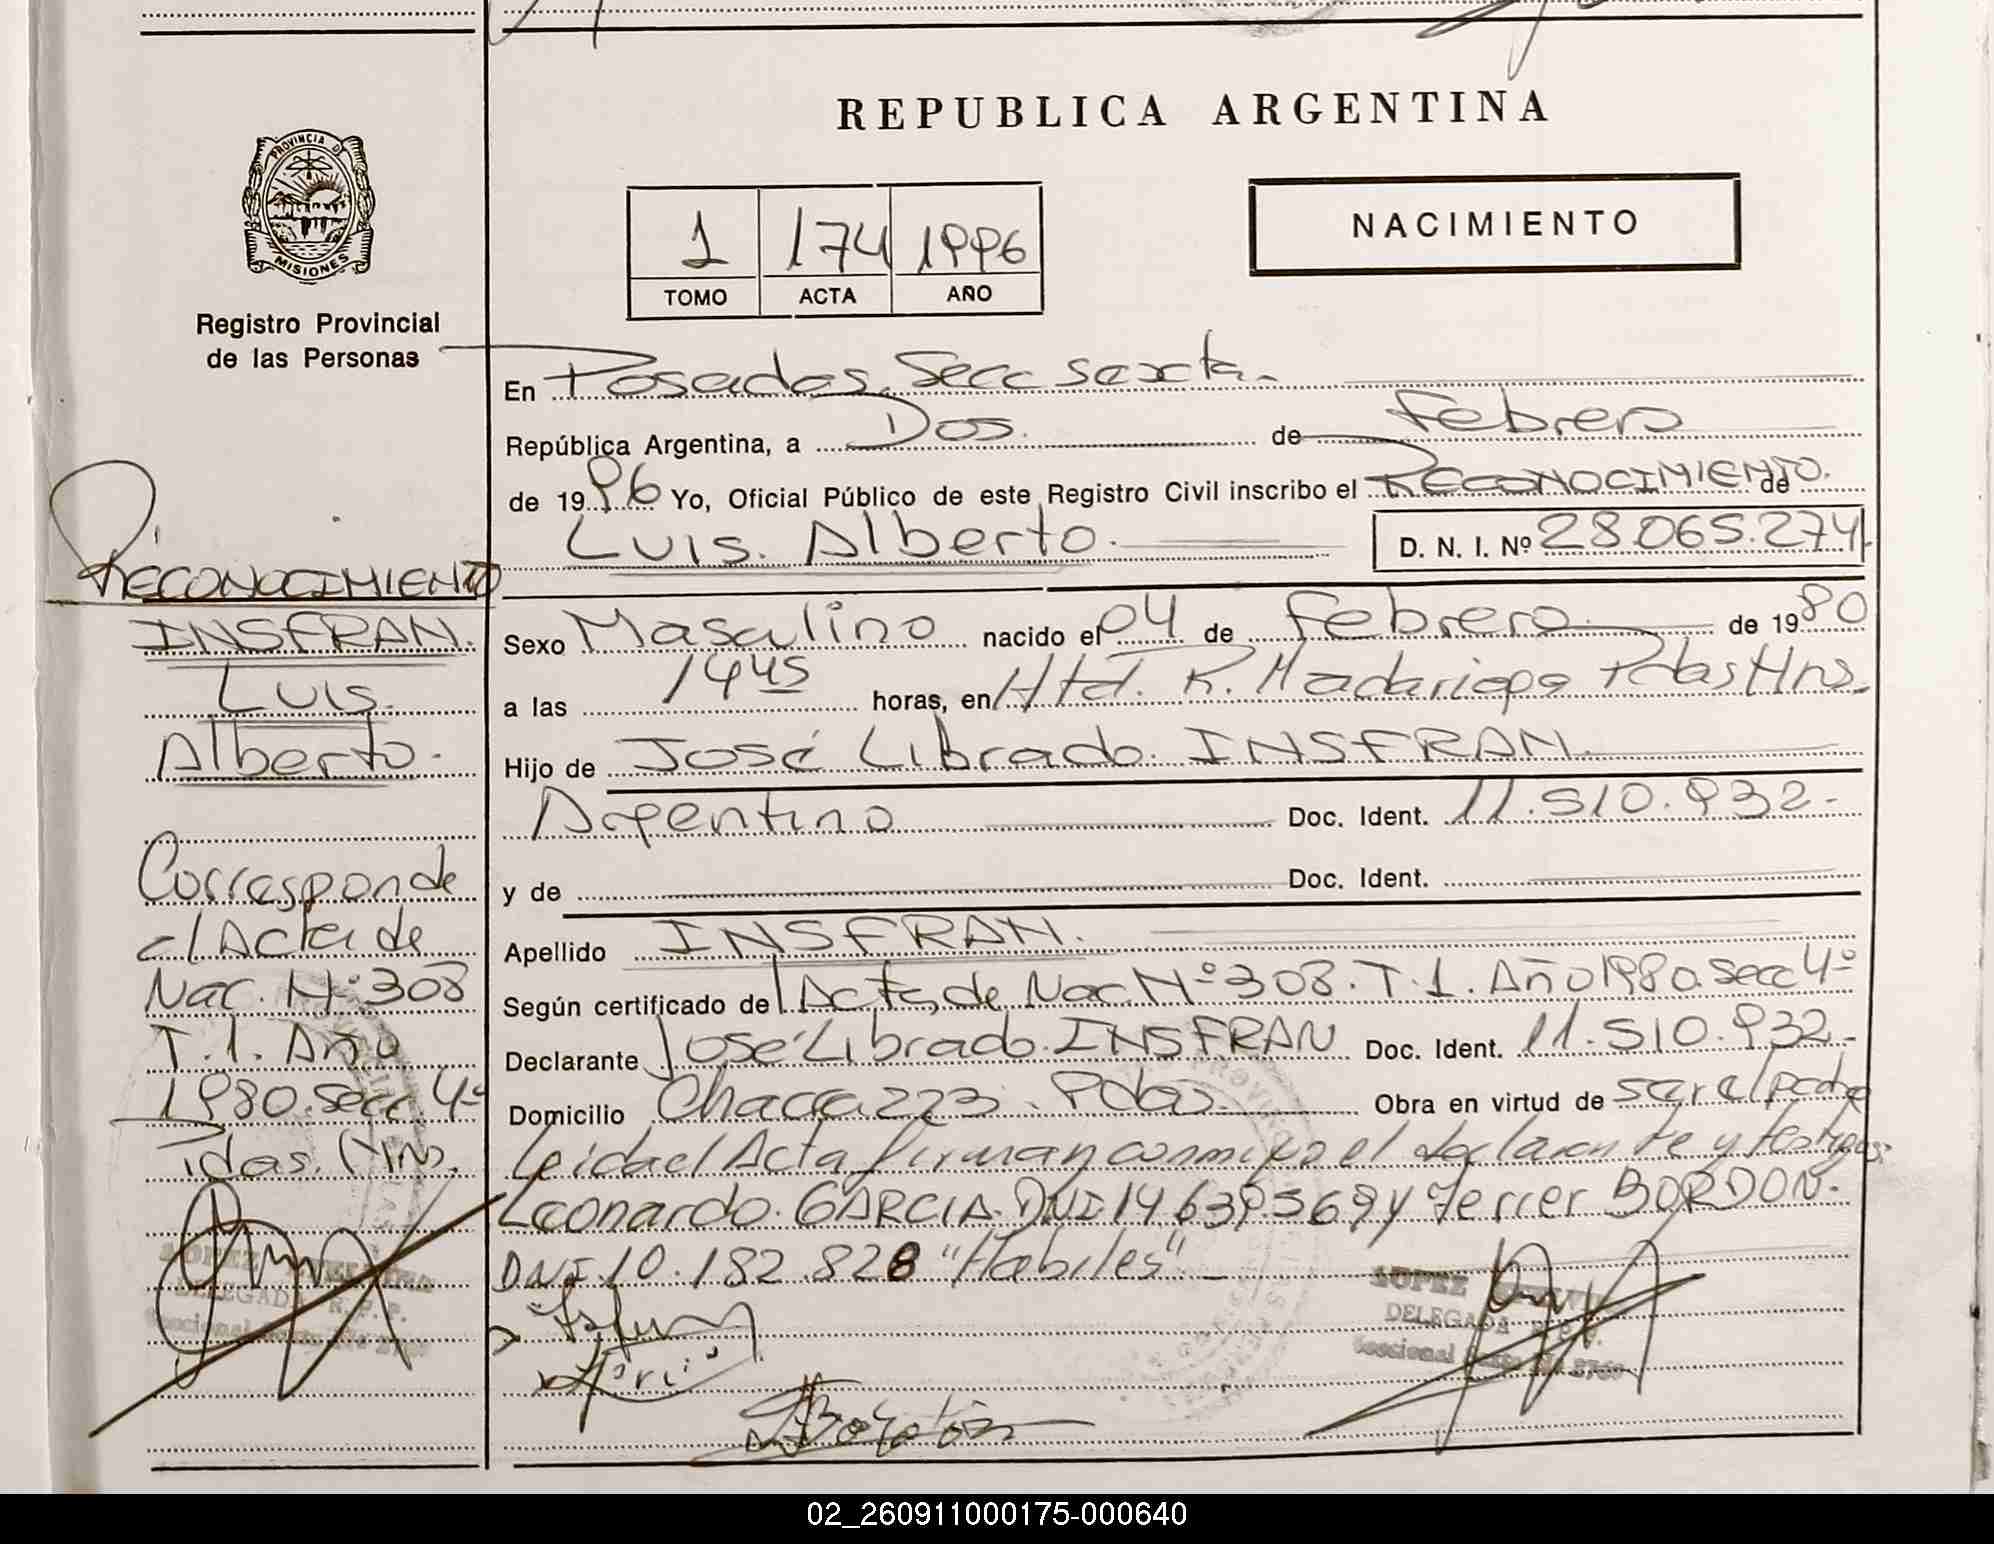 REPUBLICA ARGENTINA
PROVINCIA DE
MISIONES
Registro Provincial
de las Personas
NACIMIENTO
1 174 1996
TOMO ACTA AÑO
En Posadas. Secc sexta.
República Argentina, a Dos. de Febrero
de 1996 Yo, Oficial Público de este Registro Civil inscribo el RECONOCIMIENTO. de
Luis. Alberto. D. N. I. Nº 28.065.274
Sexo Masculino nacido el 04 de Febrero de 1980
a las 1445 horas, en Htd. R. Madariaga Pdas Mns.
Hijo de José Librado. INSFRAN.
Argentino Doc. Ident. 11.510.932-
y de Doc. Ident.
Apellido INSFRAN.
Según certificado del Acta de Nac. Nº 308. T.1. Año 1980. Secc 4º
Declarante José Librado. INSFRAN Doc. Ident. 11.510.932-
Domicilio Chacra 223. Pdas. Obra en virtud de ser el padre
Leida el Acta firman conmigo el declarante y testigos:
Leonardo. GARCIA. DNI 14.639.569 y Ferrer BORDON.
DNI. 10.182.828 "Habiles"
RECONOCIMIENTO
INSFRAN.
Luis.
Alberto.
Corresponde
al Acta de
Nac. Nº 308
T.1. Año
1980. Secc. 4º
Pdas. Mns.
LOPEZ
DELEGADA R. P. P.
Seccional Sexta
LOPEZ
DELEGADA R. P. P.
Seccional Sexta
02_260911000175-000640